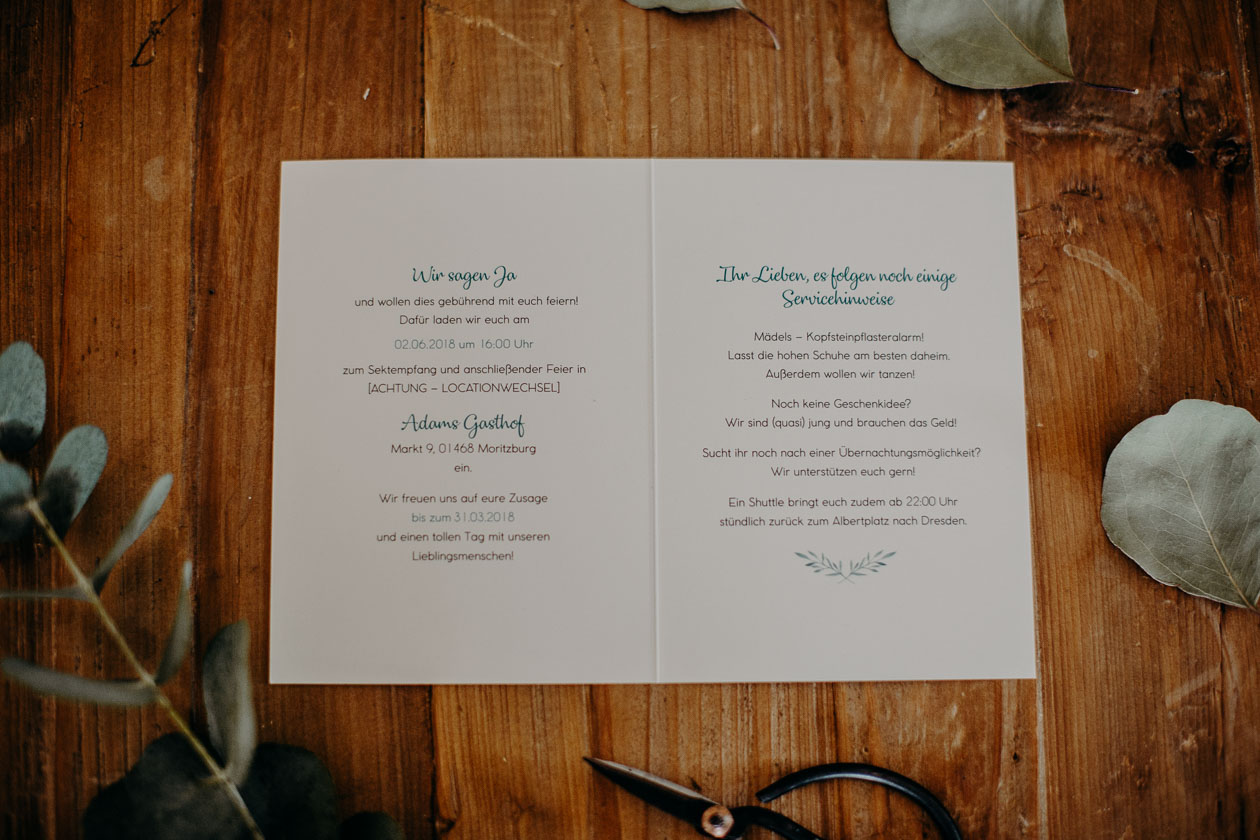 Wir sagen Ja
und wollen dies gebührend mit euch feiern!
Dafür laden wir euch am
02.06.2018 um 16:00 Uhr
zum Sektempfang und anschließender Feier in
[ACHTUNG – LOCATIONWECHSEL]
Adams Gasthof
Markt 9, 01468 Moritzburg
ein.
Wir freuen uns auf eure Zusage
bis zum 31.03.2018
und einen tollen Tag mit unseren
Lieblingsmenschen!
Ihr Lieben, es folgen noch einige
Servicehinweise
Mädels – Kopfsteinpflasteralarm!
Lasst die hohen Schuhe am besten daheim.
Außerdem wollen wir tanzen!
Noch keine Geschenkidee?
Wir sind (quasi) jung und brauchen das Geld!
Sucht ihr noch nach einer Übernachtungsmöglichkeit?
Wir unterstützen euch gern!
Ein Shuttle bringt euch zudem ab 22:00 Uhr
stündlich zurück zum Albertplatz nach Dresden.